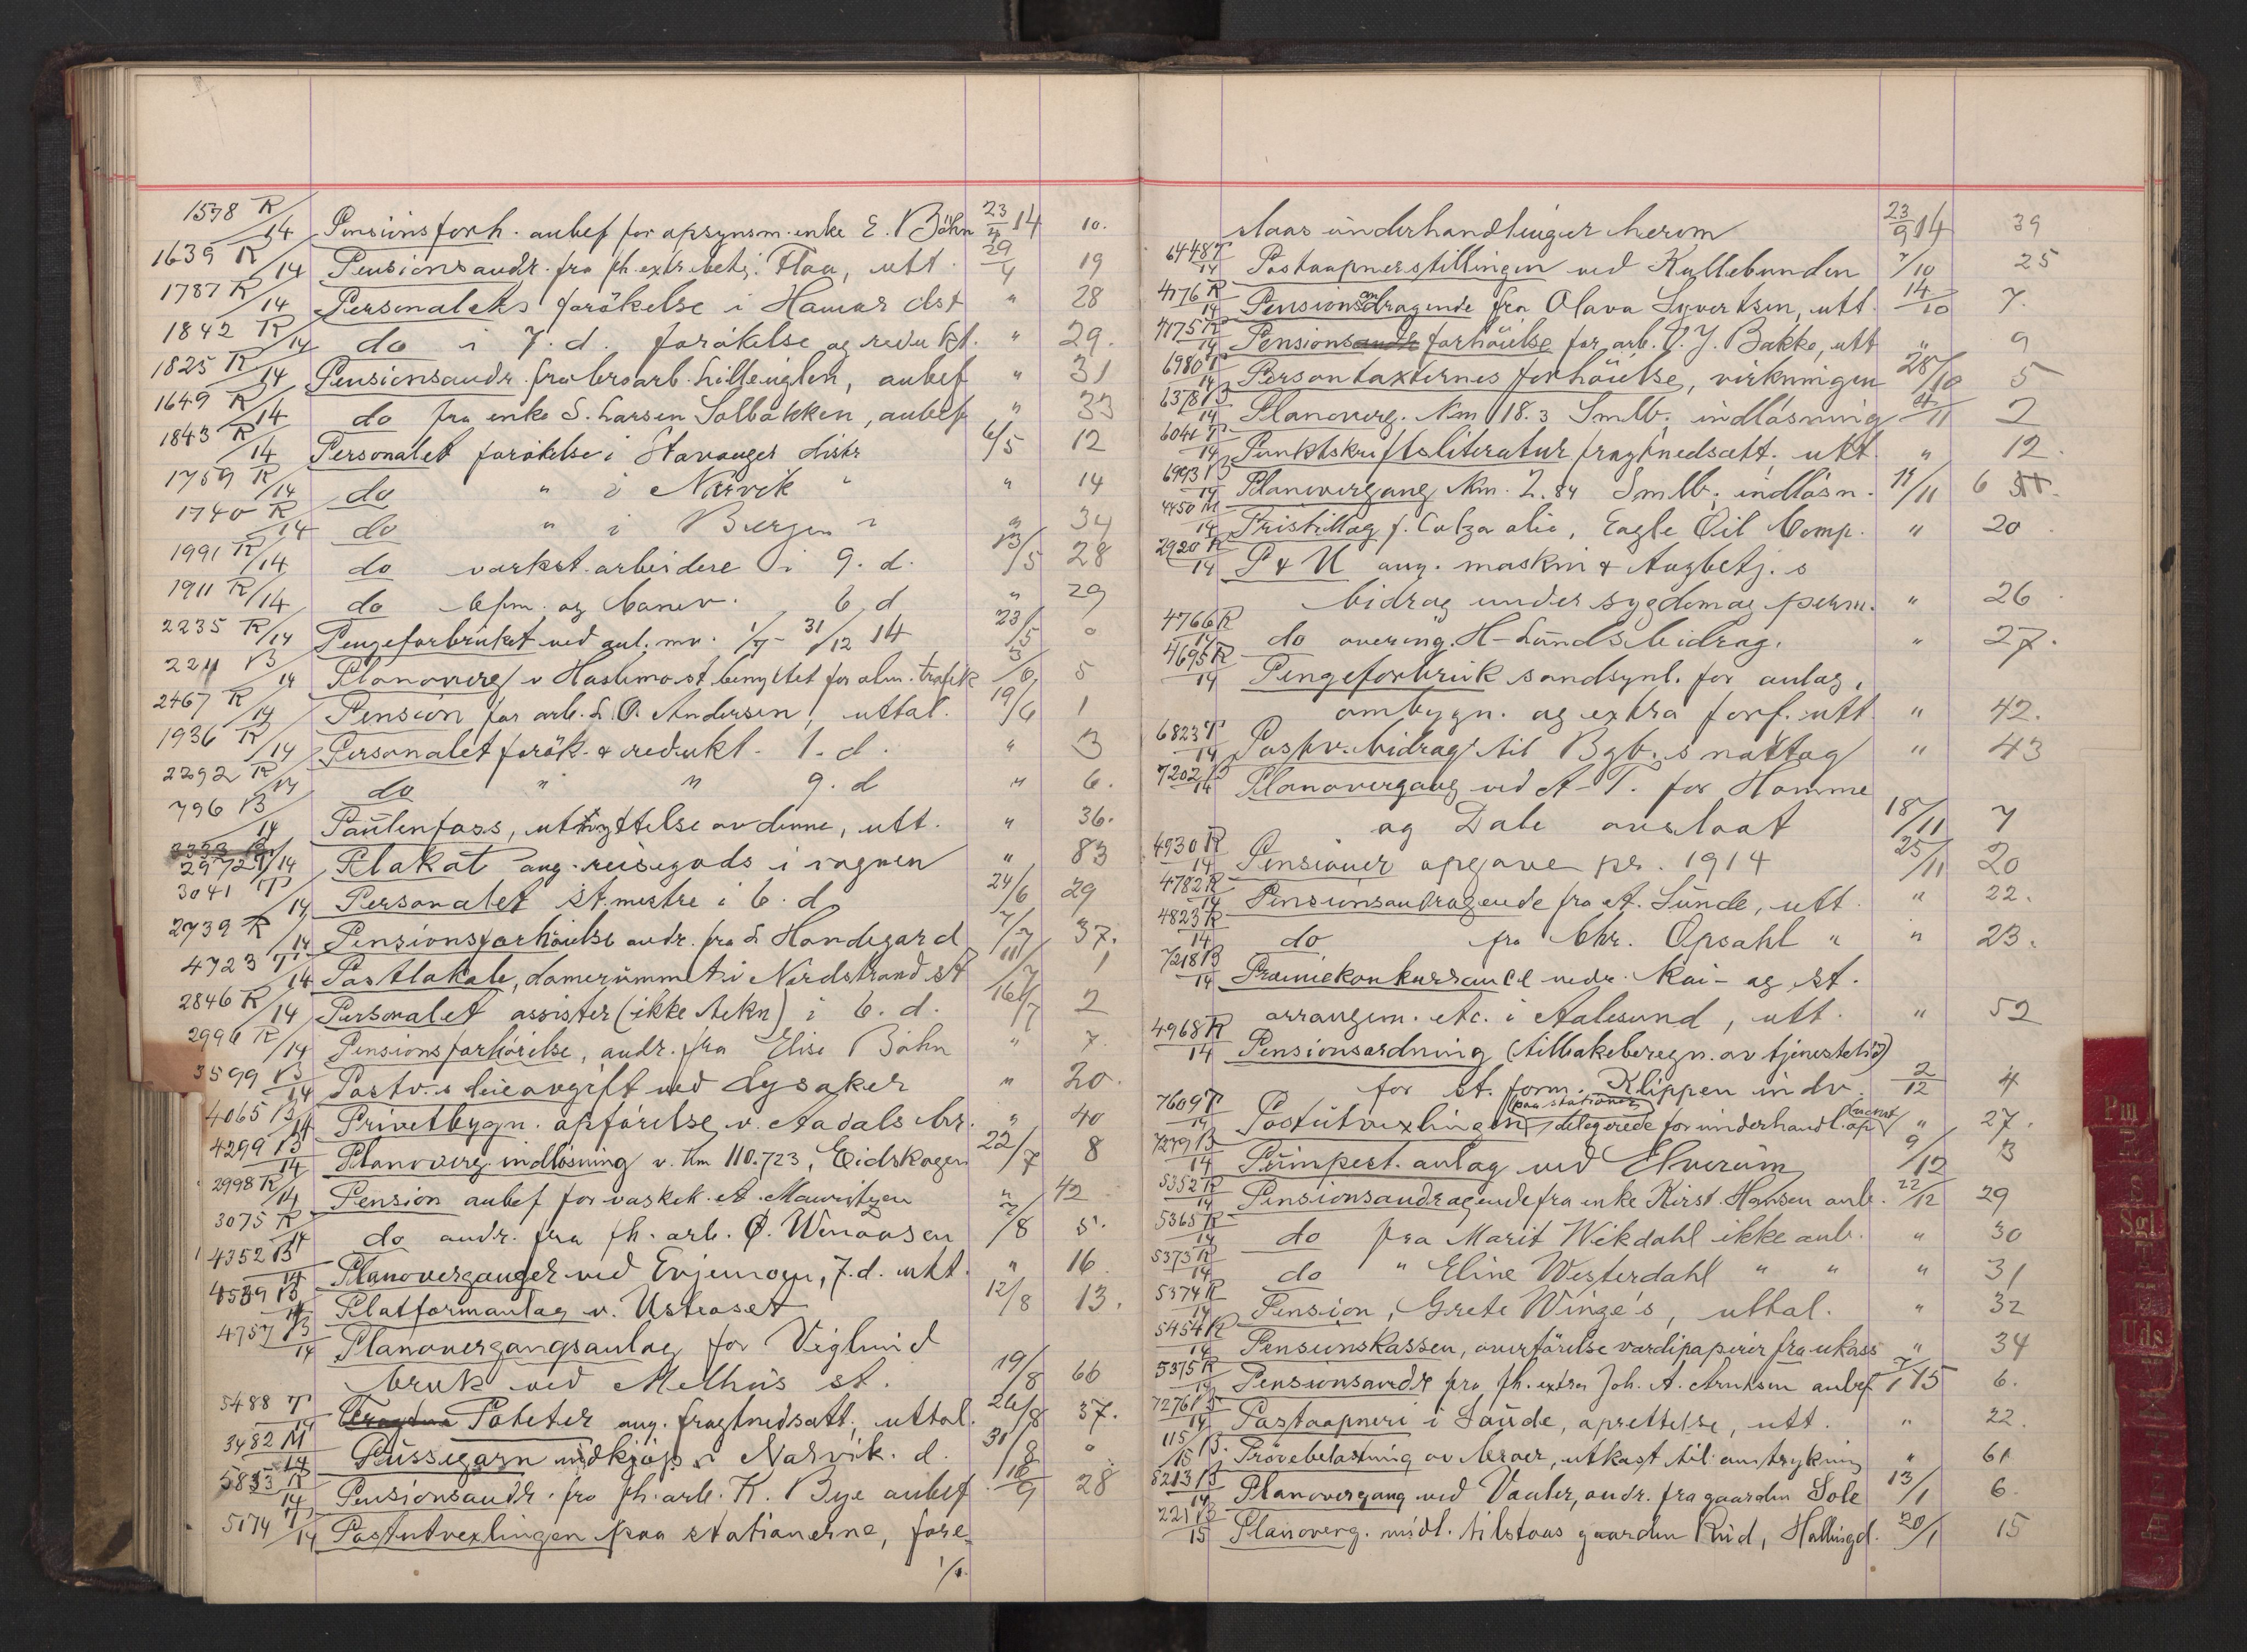 1578 R/14 Pensionsforh. anbef for opsynsm. enke E. Böhn 23/4 14 10.
1639 R/14 Pensionsandr. fra fh. extr. betj. Flaa, utt. 29/4 19
1787 R/14 Personalets forökelse i Hamar dst " 28
1842 R/14 do i 7. d. forökelse og redukt. " 29.
1825 R/14 Pensionsandr. fra broarb. Lilleengen, anbef " 31
1649 R/14 do fra enke S. Larsen Solbakken, anbef " 33
1843 R/14 Personalet forökelse i Stavanger distr 6/5 12
1759 R/14 do " i Narvik " " 14
1740 R/14 do " i Bergen " " 34
1991 R/14 do verkst. arbeidere i 9. d. 13/5 28
1911 R/14 do bfm. og banev. 6 d " 29
2235 R/14 Pengeforbruket ved anl. mv. 1/7 - 31/12 14 23/5 0
2211 B/14 Planoverg v Haslemo st. benyttet for alm. trafik 3/6 5
2467 R/14 Pension for arb. L. O. Andersen, uttal. 19/6 1
1936 R/14 Personalet forök. & redukt. 1. d. " 3
2292 R/14 do " " 9. d " 6.
796 B/14 Paulenfoss, utnyttelse av denne, utt. " 36.
2972 T/14 Plakat ang. reisegods i vognen " 83
3041 T/14 Personalet st. mestre i 6. d. 24/6 29
2739 R/14 Pensionsforhöielse andr. fra L Handegard 7/7 37.
4723 T/14 Postlokale, damerummet i Nordstrand st 11/7 1
2846 R/14 Personalet assister (ikke tekn) i 6. d. 16/7 2
2996 R/14 Pensionsforhöielse, andr. fra Elise Böhn " 7.
3599 B/14 Postv.s leieavgift ved Lysaker " 20.
4065 B/14 Privetbygn. opförelse v. Aadals br. " 40
4299 B/14 Planoverg. indlösning v. Km 110.723, Eidskogen 22/7 8
2998 R/14 Pension anbef for vaskek. A. Mauritzen " 42
3075 R/14 do andr. fra fh. arb. O. Winaasen 7/8 5.
4352 B/14 Planoverganger ved Evjemoen, 7. d. utt. " 16
4539 B/14 Platformanlæg v. Ustaoset 12/8 13.
4757 B/14 Planovergangsanlæg for Viglund
bruk ved Melhus st. 19/8 66
5488 T/14 Poteter ang. fragtnedsætt; uttal. 26/8 37.
3482 M/14 Pussegarn indkjöp i Narvik. d. 31/8 0
5833 R/14 Pensionsandr. fra fh. arb. K. Bye anbef. 16/9 28
5174 T/14 Postutvexlingen paa stationerne, fore-
1/0.
slaas underhandlinger herom 23/9 14 39
6448 T/14 Postaapnerstillingen ved Kullebunden 7/10 25
4176 R/14 Pensionsandragende fra Olava Syvertsen, utt. 14/10 7.
4175 R/14 Pensionsandr forhöielse for arb. O. J. Bakke, utt " 9
6980 T/14 Persontaxternes forhöielse, virkningen 28/10 5
6378 B/14 Planoverg. Km 18.3 Smlb; indlösning 4/11 2
6041 T/14 Punktskriftsliteratur fragtnedsætt. utt. " 12.
6993 B/14 Planovergang Km. 2.84 Smlb; indlösn. 11/11 6
4450 M/14 Pristillæg f. Colza olie, Eagle Oil Comp. " 20
2920 R/14 P & U ang. maskin & Avgbetj.s
bidrag under sygdom og perm. " 26
4766 R/14 do overing. H-Lunds bidrag. " 27.
4695 R/14 Pengeforbruk sandsynl. for anlæg,
ombygn. og extra forf. utt " 42.
6823 T/14 Postv. bidrag til Bgb.s nattog " 43
7202 B/14 Planovergang ved A-T. for Homme
og Dale avslaat 18/11 7
4930 R/14 Pensioner opgave pr. 1914 25/11 20
4782 R/14 Pensionsandragende fra A. Sunde, utt. " 22.
4823 R/14 do fra Chr. Opsahl " " 23.
7218 B/14 Præmiekonkurrance vedr. kai- og st.
arrangem. etc. i Aalesund, utt. " 52
4968 R/14 Pensionsordning (tilbakeberegn. av tjenestetid)
for st. form. Klippen indv. 2/12 4
7609 T/14 Postutvexlingen (paa stationer), delegerede for underhandl. opnævnt " 27.
7279 B/14 Pumpest. anlæg ved Elverum 9/12 3
5352 R/14 Pensionsandragende fra enke Kirst. Hansen anb. 22/12 29
5365 R/14 do fra Marit Wikdahl ikke anb. " 30
5373 R/14 do " Eline Westerdahl " " " 31
5374 R/14 Pension, Grete Winge's, uttal. " 32
5454 R/14 Pensionskassen, overförelse værdipapirer fra ukass " 34
5375 R/14 Pensionsandr fra fh. extra Joh. A. Arntsen anbef 7/1 15 6.
7276 B/14 Postaapneri i Saude, oprettelse, utt. " 22.
115 B/15 Prövebelastning av broer, utkast til omtrykning " 61
8213 B/14 Planovergang ved Vaaler, andr. fra gaarden Sole 13/1 6.
221 B/15 Planoverg. midl. tilstaas gaarden Rud, Hallingd. 20/1 15
Pm
Sgl
T
Uds